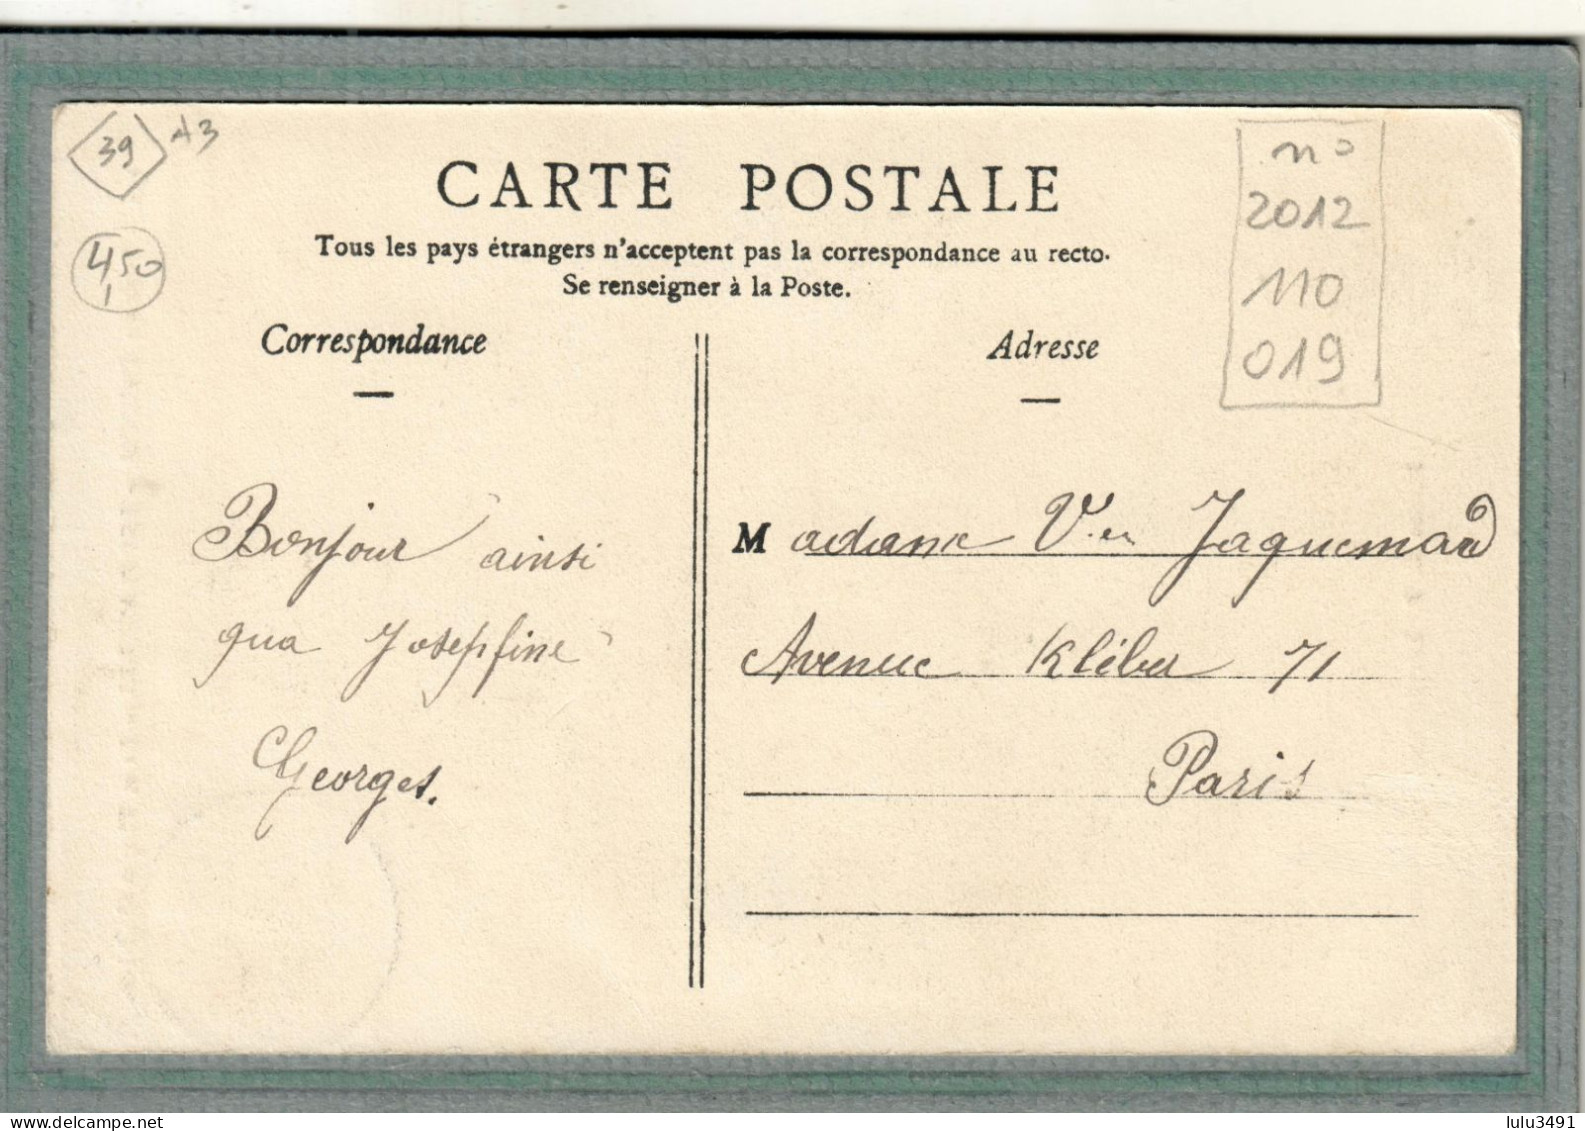 39 A3
4,50
n°
2012
110
019
CARTE POSTALE
Tous les pays étrangers n'acceptent pas la correspondance au recto.
Se renseigner à la Poste.
Correspondance
Adresse
Bonjour ainsi
qua Josephine
Georges.
Madame Vve Jaquemard
Avenue Kléber 71
Paris
lulu3491